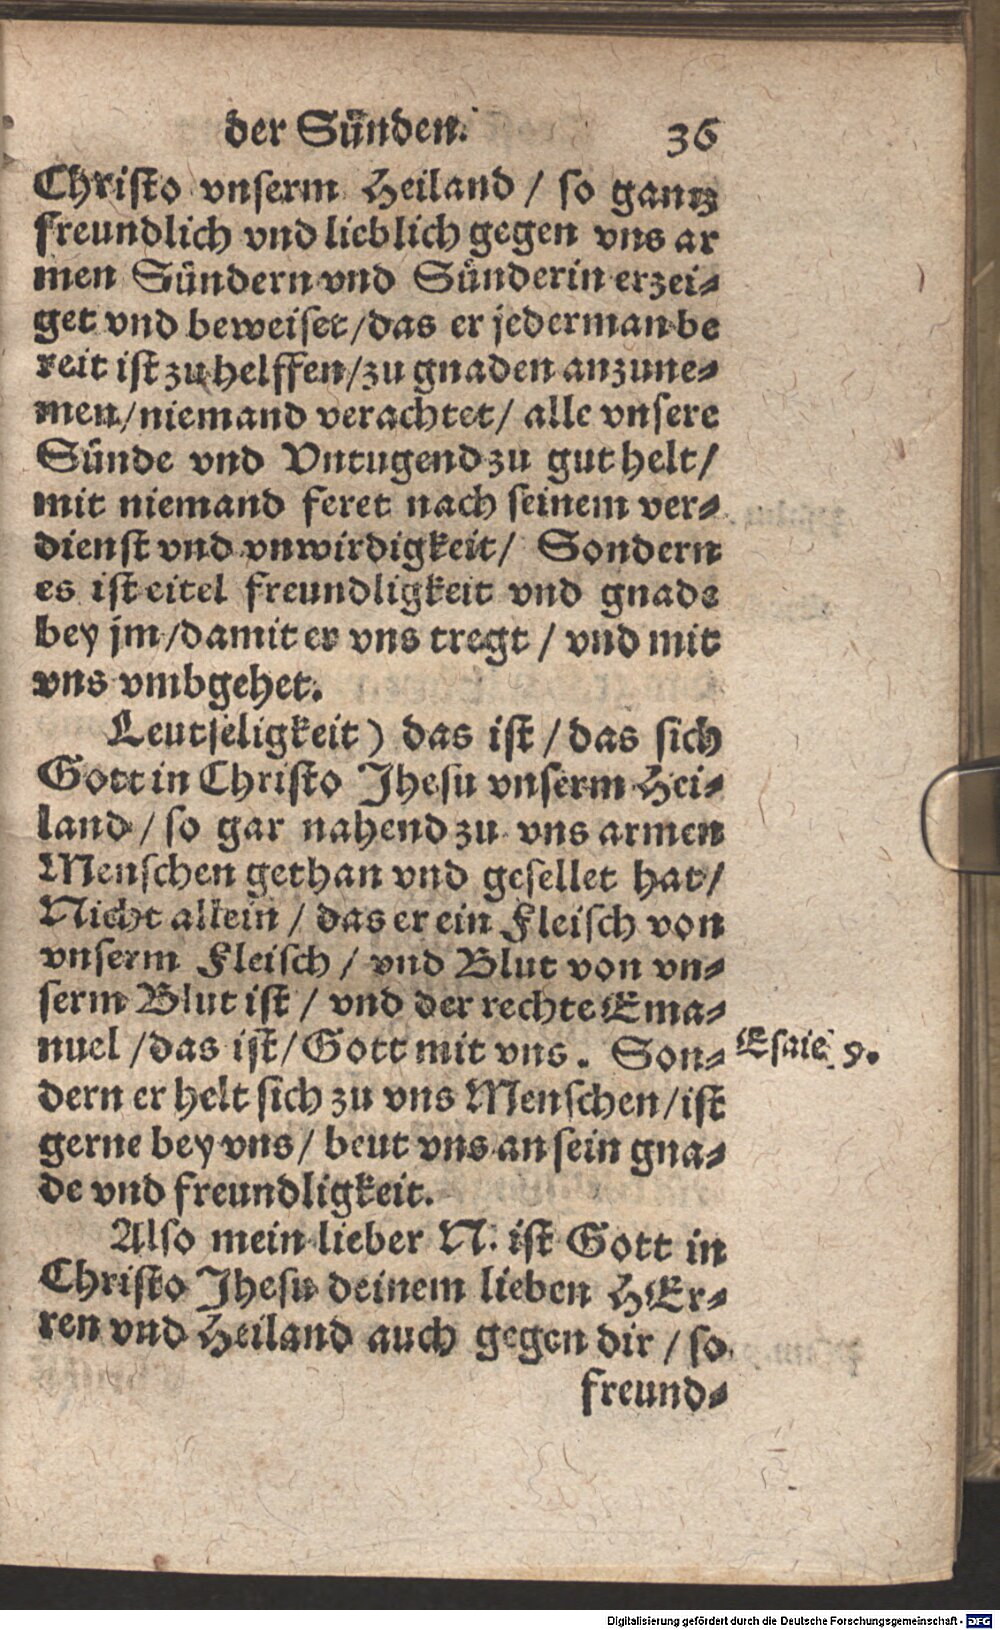 der Sünden. 36
Christo vnserm Heiland / so gantz
freundlich vnd lieblich gegen vns ar
men Sündern vnd Sünderin erzei⸗
get vnd beweiset/das er jederman be
reit ist zu helffen/zu gnaden anzune⸗
men/niemand verachtet/ alle vnsere
Sünde vnd Vntugend zu gut helt/
mit niemand feret nach seinem ver⸗
dienst vnd vnwirdigkeit/ Sondern
es ist eitel freundligkeit vnd gnade
bey jm/damit er vns tregt / vnd mit
vns vmbgehet.
Leutseligkeit) das ist / das sich
Gott in Christo Jhesu vnserm Hei⸗
land / so gar nahend zu vns armen
Menschen gethan vnd gesellet hat/
Nicht allein / das er ein Fleisch von
vnserm Fleisch / vnd Blut von vn⸗
serm Blut ist / vnd der rechte Ema⸗
nuel /das ist/ Gott mit vns. Son⸗
Esaie 9.
dern er helt sich zu vns Menschen/ist
gerne bey vns/ beut vns an sein gna⸗
de vnd freundligkeit.
Also mein lieber N. ist Gott in
Christo Jhesu deinem lieben HEr⸗
ren vnd Heiland auch gegen dir / so
freund⸗
Digitalisierung gefördert durch die Deutsche Forschungsgemeinschaft - DFG